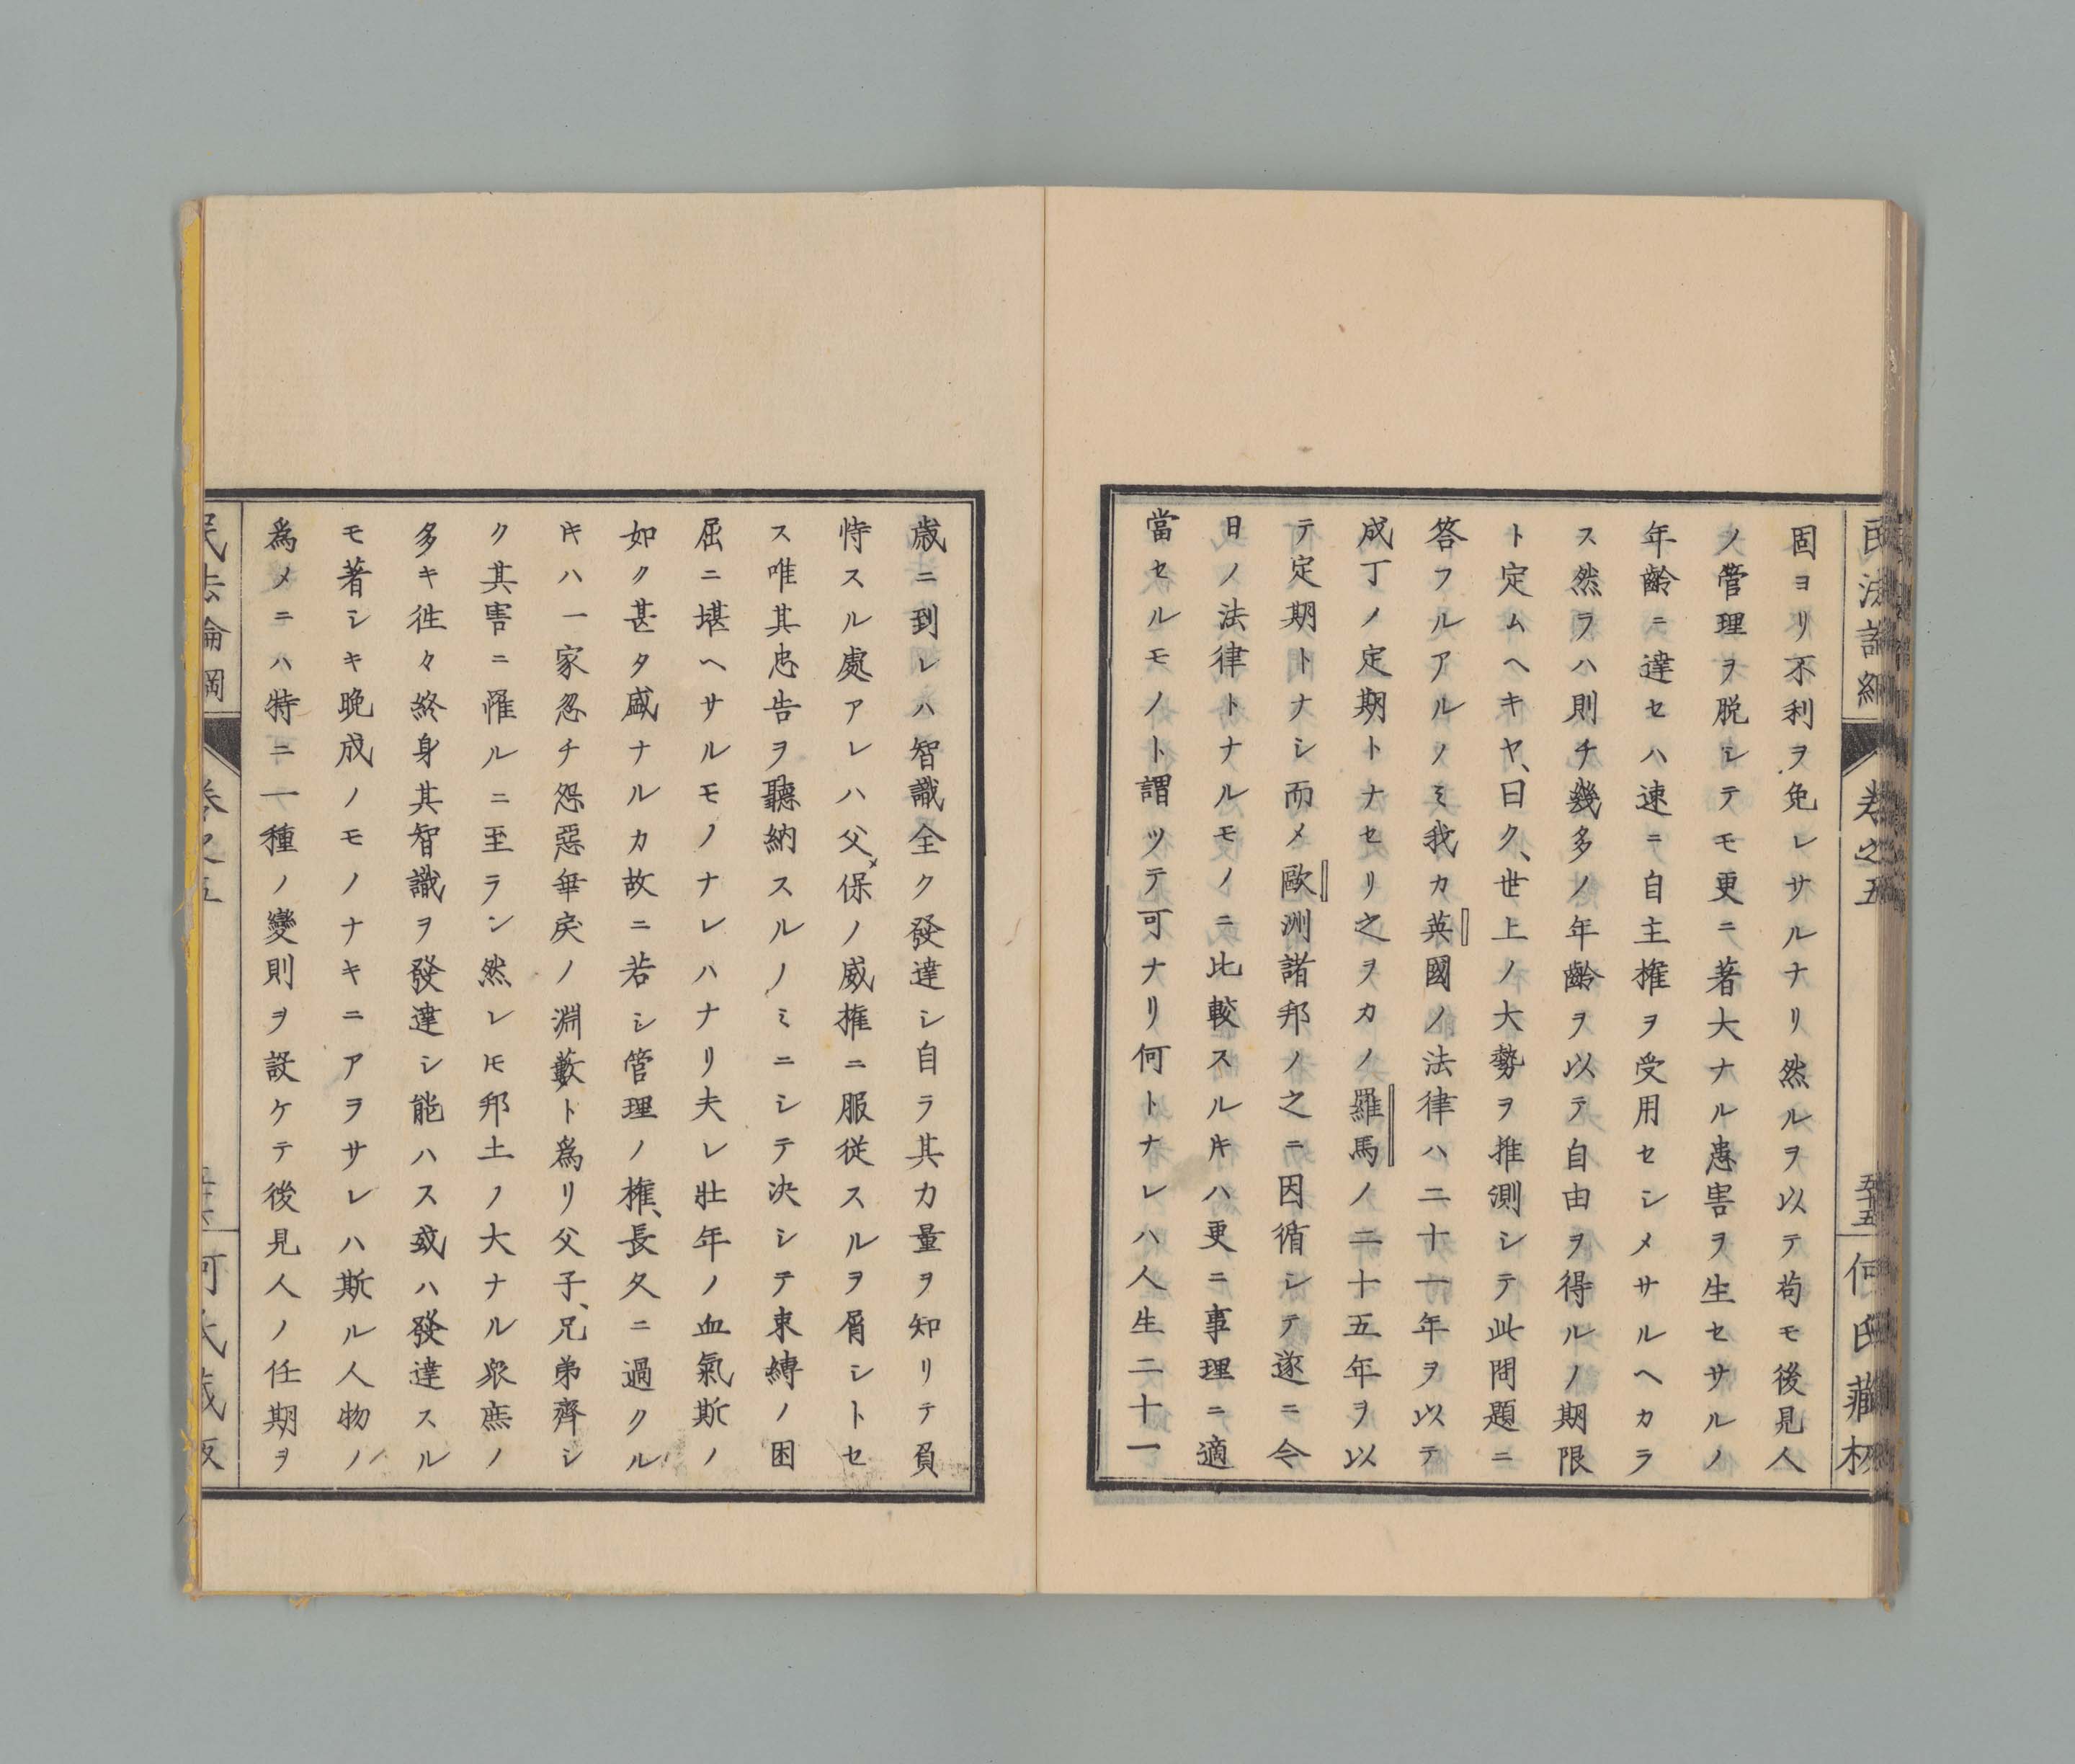 民法論綱 卷之五 五十五 何氏藏板
固ヨリ不利ヲ免レサルナリ然ルヲ以テ苟モ後見人
ノ管理ヲ脱シテモ更ニ著大ナル患害ヲ生セサルノ
年齡ニ達セハ速ニ自主權ヲ受用セシメサルヘカラ
ス然ラハ則チ幾多ノ年齡ヲ以テ自由ヲ得ルノ期限
ト定ムヘキヤ、曰ク、世上ノ大勢ヲ推測シテ此問題ニ
答フルアルノミ我カ英國ノ法律ハ二十一年ヲ以テ
成丁ノ定期トナセリ之ヲカノ羅馬ノ二十五年ヲ以
テ定期トナシ而メ歐洲諸邦ノ之ニ因循シテ遂ニ今
日ノ法律トナルモノニ比較スルキハ更ニ事理ニ適
當セルモノト謂ツテ可ナリ何トナレハ人生二十一
歳ニ到レハ智識全ク發達シ自ラ其力量ヲ知リテ負
恃スル處アレハ父保ノ威權ニ服從スルヲ屑シトセ
ス唯其忠告ヲ聽納スルノミニシテ決シテ束縛ノ困
屈ニ堪ヘサルモノナレハナリ夫レ壯年ノ血氣斯ノ
如ク甚タ盛ナルカ故ニ若シ管理ノ權、長久ニ過クル
キハ一家忽チ怨惡乖戾ノ淵藪ト爲リ父子、兄弟齊シ
ク其害ニ罹ルニ至ラン然レ𪜈邦土ノ大ナル衆庶ノ
多キ徃々終身其智識ヲ發達シ能ハス或ハ發達スル
モ著シキ晚成ノモノナキニアラサレハ斯ル人物ノ
爲メニハ特ニ一種ノ變則ヲ設ケテ後見人ノ任期ヲ
民法論綱 卷之五 何氏藏板